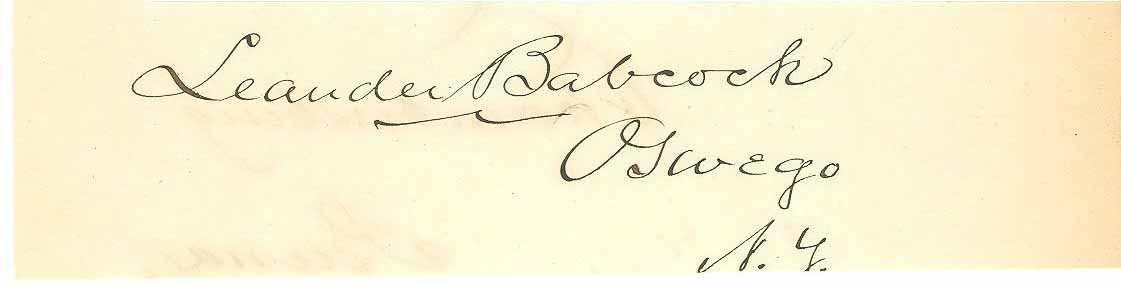 Leander Babcock
Oswego
N. Y.